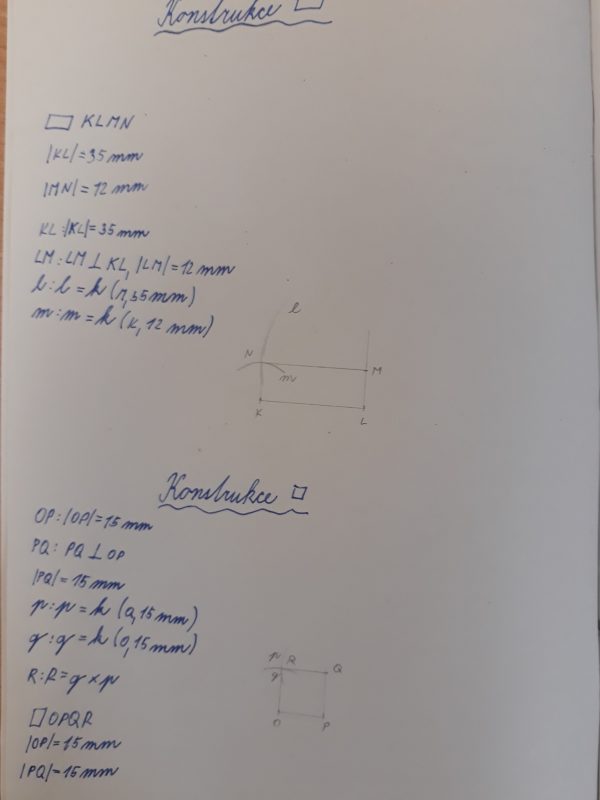 Konstrukce ▭
▭ KLMN
|KL|=35 mm
|MN|=12 mm
KL:|KL|=35 mm
LM: LM ⊥ KL, |LM|=12 mm
l: l = k (M, 35 mm)
m: m = k (K, 12 mm)
l
N
m
M
K
L
Konstrukce □
OP: |OP|=15 mm
PQ: PQ ⊥ OP
|PQ|=15 mm
p: p = k (Q, 15 mm)
q: q = k (O, 15 mm)
R: R = q × p
□ OPQR
|OP|=15 mm
|PQ|=15 mm
p
R
Q
q
O
P